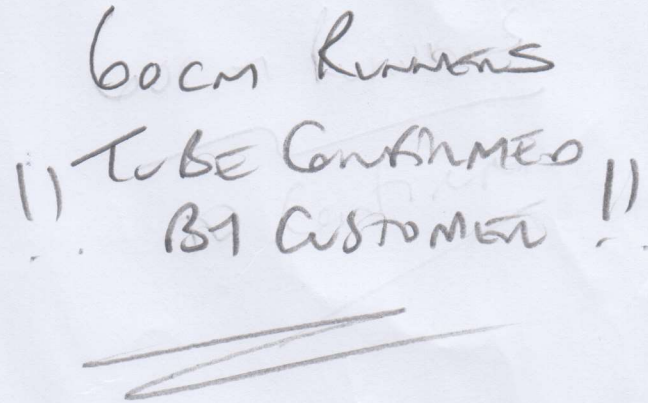 60cm RUNNERS
!! TO BE CONFIRMED !!
BY CUSTOMER